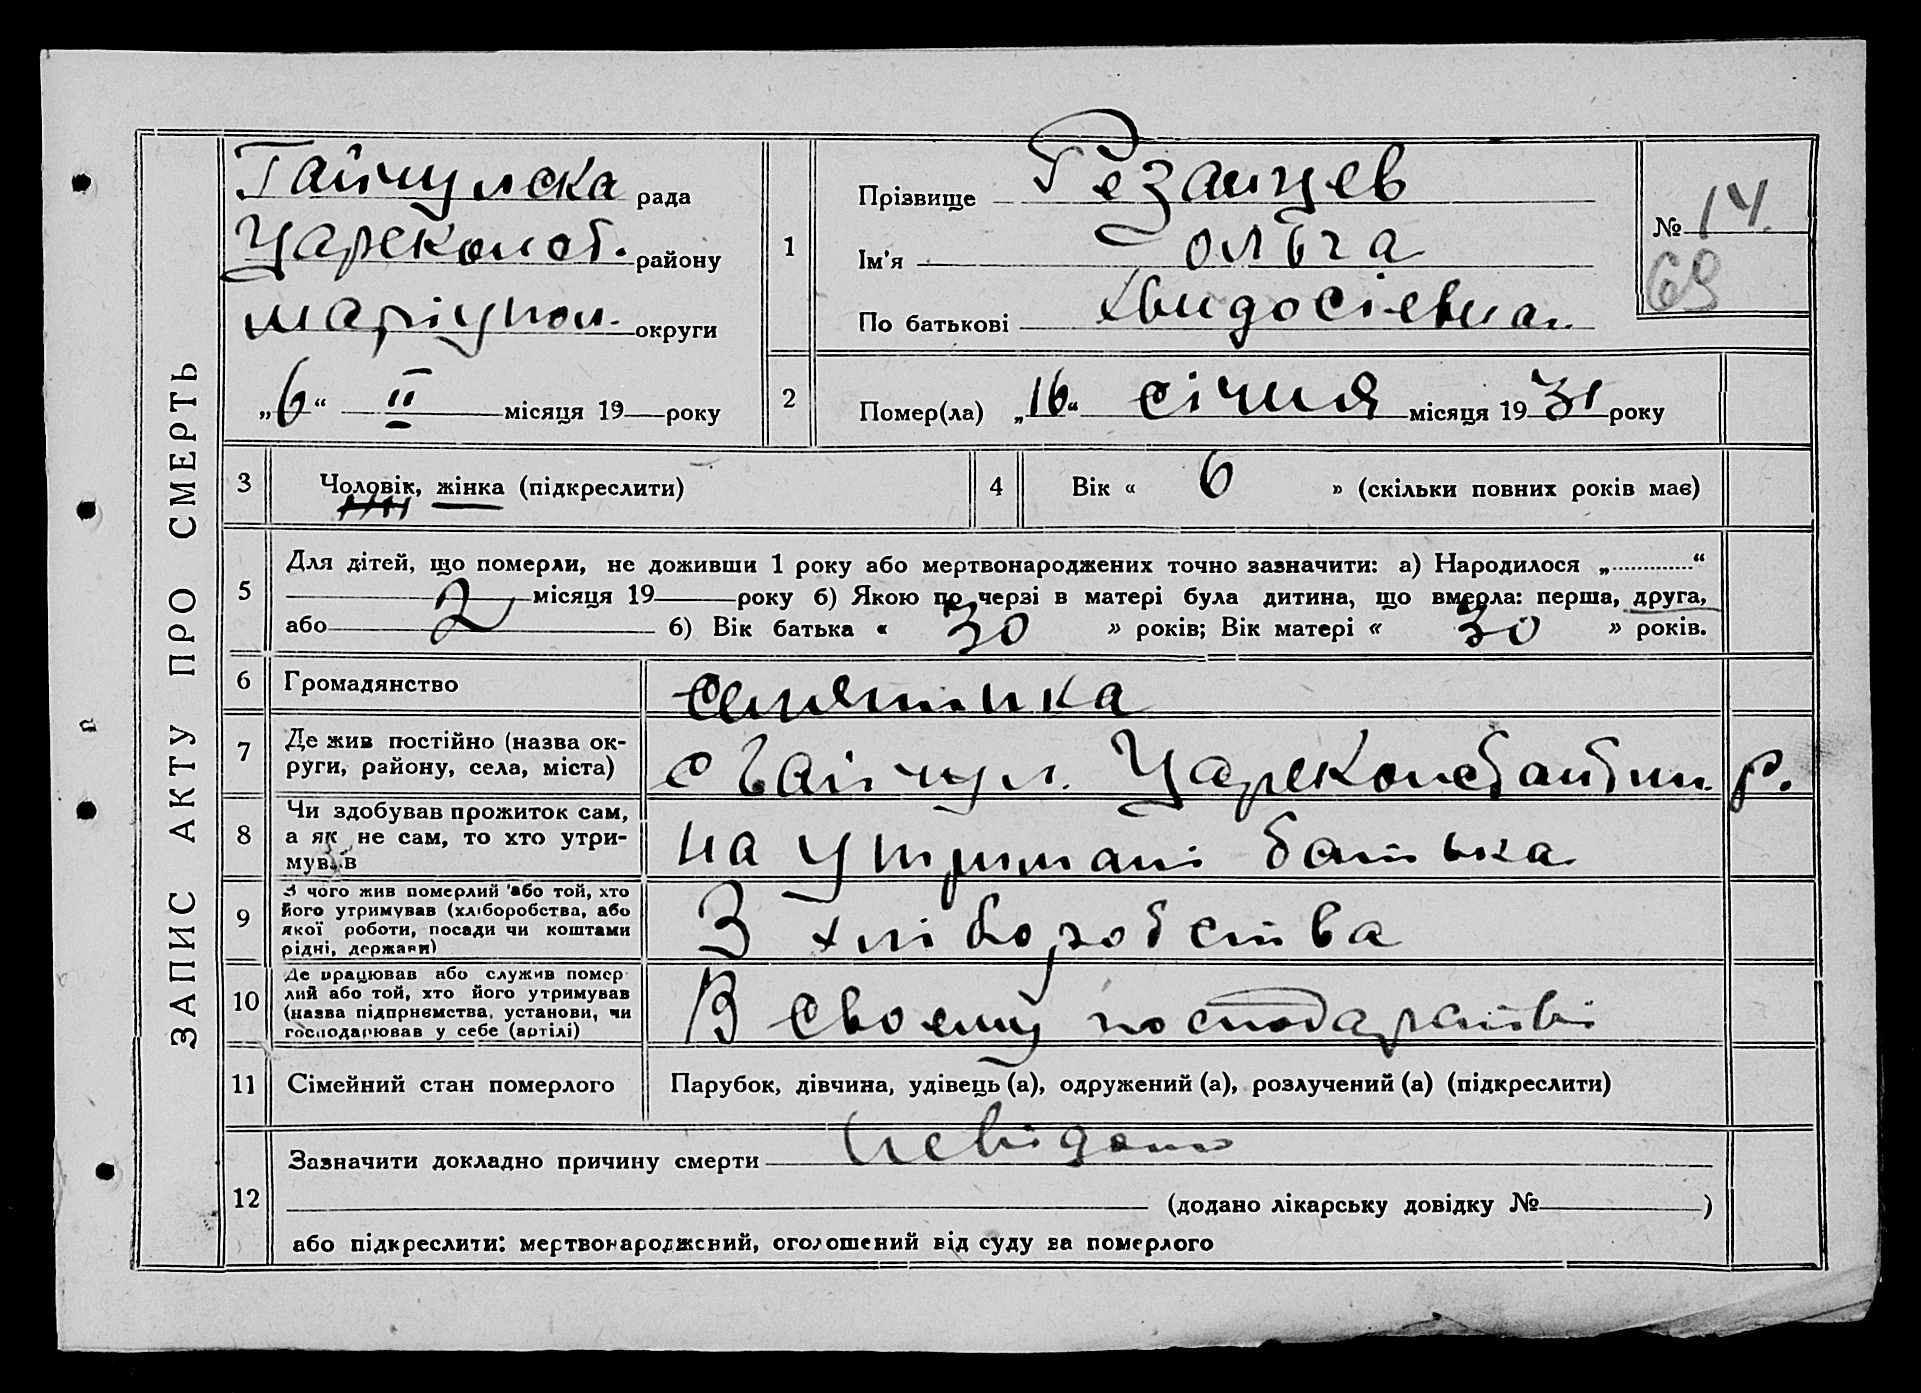 ЗАПИС АКТУ ПРО СМЕРТЬ
Гайчулска рада
Цареконст. району
маріупол. округи
„6“ II місяця 19 року
1
Прізвище Резанцев
Ім'я Ольга
По батькові Хвидосіевна
№ 14.
69
2
Помер(ла) „16“ січня місяця 1931 року
3
Чоловік, жінка (підкреслити)
4
Вік « 6 » (скільки повних років має)
5
Для дітей, що померли, не доживши 1 року або мертвонароджених точно зазначити: а) Народилося „.............“
місяця 19 року б) Якою по черзі в матері була дитина, що вмерла: перша, друга,
або 2 б) Вік батька « 30 » років; Вік матері « 30 » років.
6
Громадянство
селяпинка
7
Де жив постійно (назва ок-
руги, району, села, міста)
с Гайчул. Цареконстантин. р.
8
Чи здобував прожиток сам,
а як не сам, то хто утри-
мував
на утримані батька
9
З чого жив померлий або той, хто
його утримував (хліборобства, або
якої роботи, посади чи коштами
рідні, держави)
З хліборобства
10
Де працював або служив помер
лий або той, хто його утримував
(назва підприємства, установи, чи
господарював у себе (артілі)
В своему господарстві
11
Сімейний стан померлого
Парубок, дівчина, удівець (а), одружений (а), розлучений (а) (підкреслити)
12
Зазначити докладно причину смерти невідомо
(додано лікарську довідку № )
або підкреслити: мертвонароджений, оголошений від суду за померлого